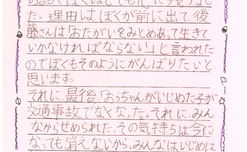 た。理由はぼくが前に出て後
藤さんは「おたがいをみとめあって生きて
いかなければならない」と言われた
のでぼくもそのようにがんばりたいと
思います。
それに最後「おっちゃんがいじめた子が
交通事故でなくなった。それに、みん
なからせめられた。その気持ちは今に
なっても消えないから、みんなはいじめは